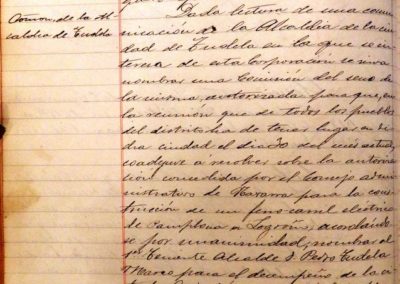 Comon. de la Al-
caldia de Tudela
Dada lectura de una comu-
nicación de la Alcaldia de la ciu-
dad de Tudela en la que se in-
teresa de esta Corporación se sirva
nombrar una Comisión del seno de
la misma, autorizada para que, en
la reunión que de todos los pueblos
del distrito ha de tener lugar en di-
cha ciudad el dia dos del mes actual,
coadyuve a resolver sobre la autoriza-
cion concedida por el Consejo admi-
nistrativo de Navarra para la cons-
trucción de un ferro carril electrico
de Pamplona a Logroño, acordando-
se por unanimidad, nombrar al
1er Teniente Alcalde D. Pedro Tudela
y Marco para el desempeño de la ci-